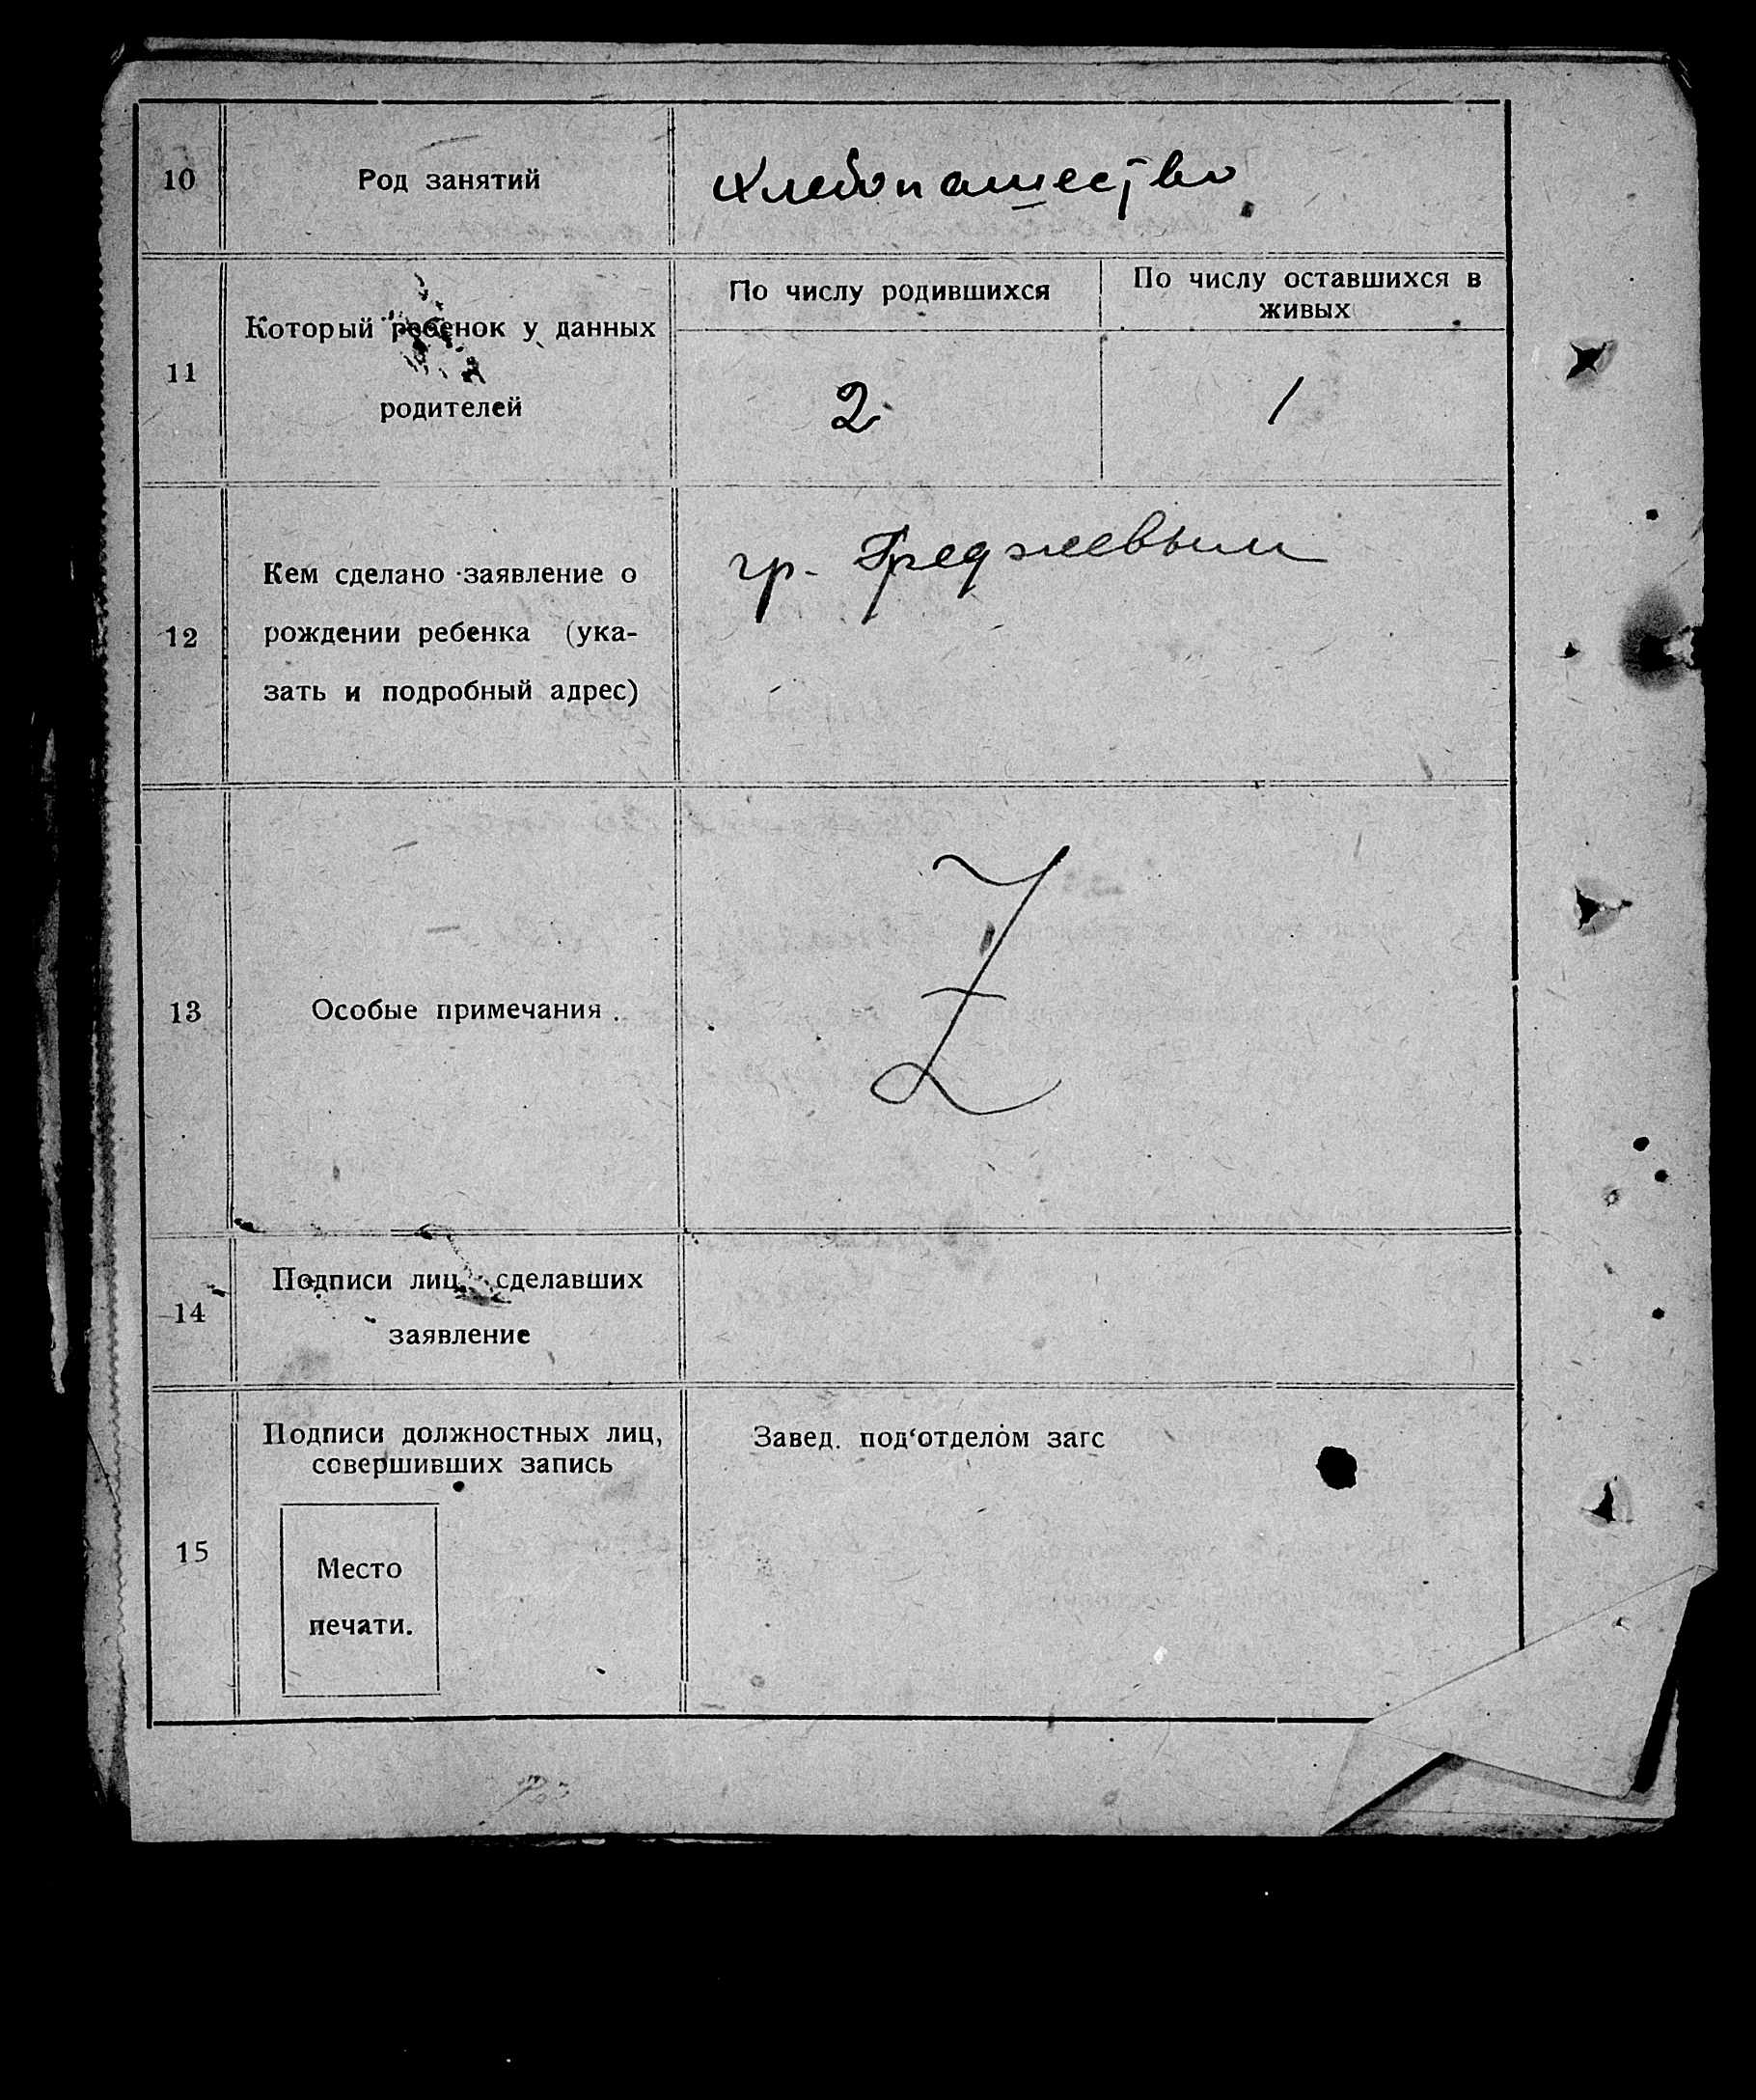 10
Род занятий
хлебопашество
11
Который ребенок у данных
родителей
По числу родившихся
По числу оставшихся в
живых
2
1
12
Кем сделано заявление о
рождении ребенка (ука-
зать и подробный адрес)
гр.
13
Особые примечания.
Z
14
Подписи лиц, сделавших
заявление
15
Подписи должностных лиц,
совершивших запись
Место
печати.
Завед. под'отделом загс